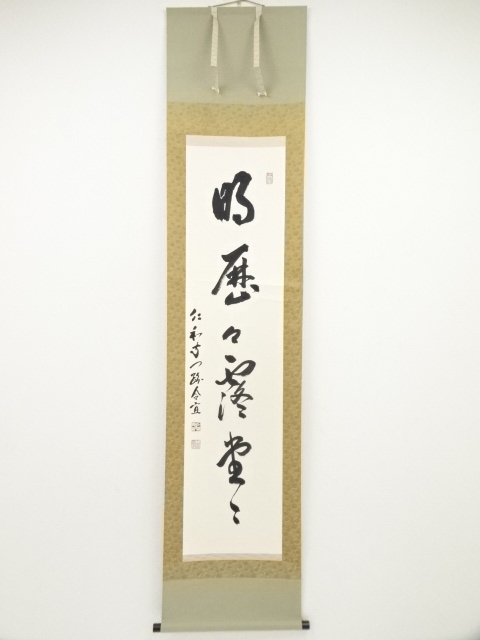 明歴々露堂々
仁和寺門跡令宜